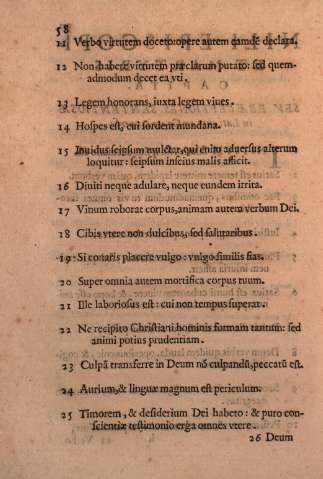 58
11 Verbo virtutem doceto: opere autem eamdē declara.
12 Non habere virtutem præclarum putato: sed quem-
admodum decet ea vti.
13 Legem honorans, iuxta legem viues.
14 Hospes est, cui sordent mundana.
15 Inuidus seipsum mulctat, qui enim aduersus alterum
loquitur: seipsum inscius malis afficit.
16 Diuiti neque adulare, neque eundem irrita.
17 Vinum roborat corpus, animam autem verbum Dei.
18 Cibis vtere non dulcibus, sed salutaribus.
19 Si conaris placere vulgo: vulgo similis fias.
20 Super omnia autem mortifica corpus tuum.
21 Ille laboriosus est: cui non tempus superat.
22 Ne recipito Christiani hominis formam tantum: sed
animi potius prudentiam.
23 Culpā transferre in Deum nō culpandū, peccatū est.
24 Aurium, & linguæ magnum est periculum.
25 Timorem, & desiderium Dei habeto: & puro con-
scientiæ testimonio erga omnes vtere.
26 Deum